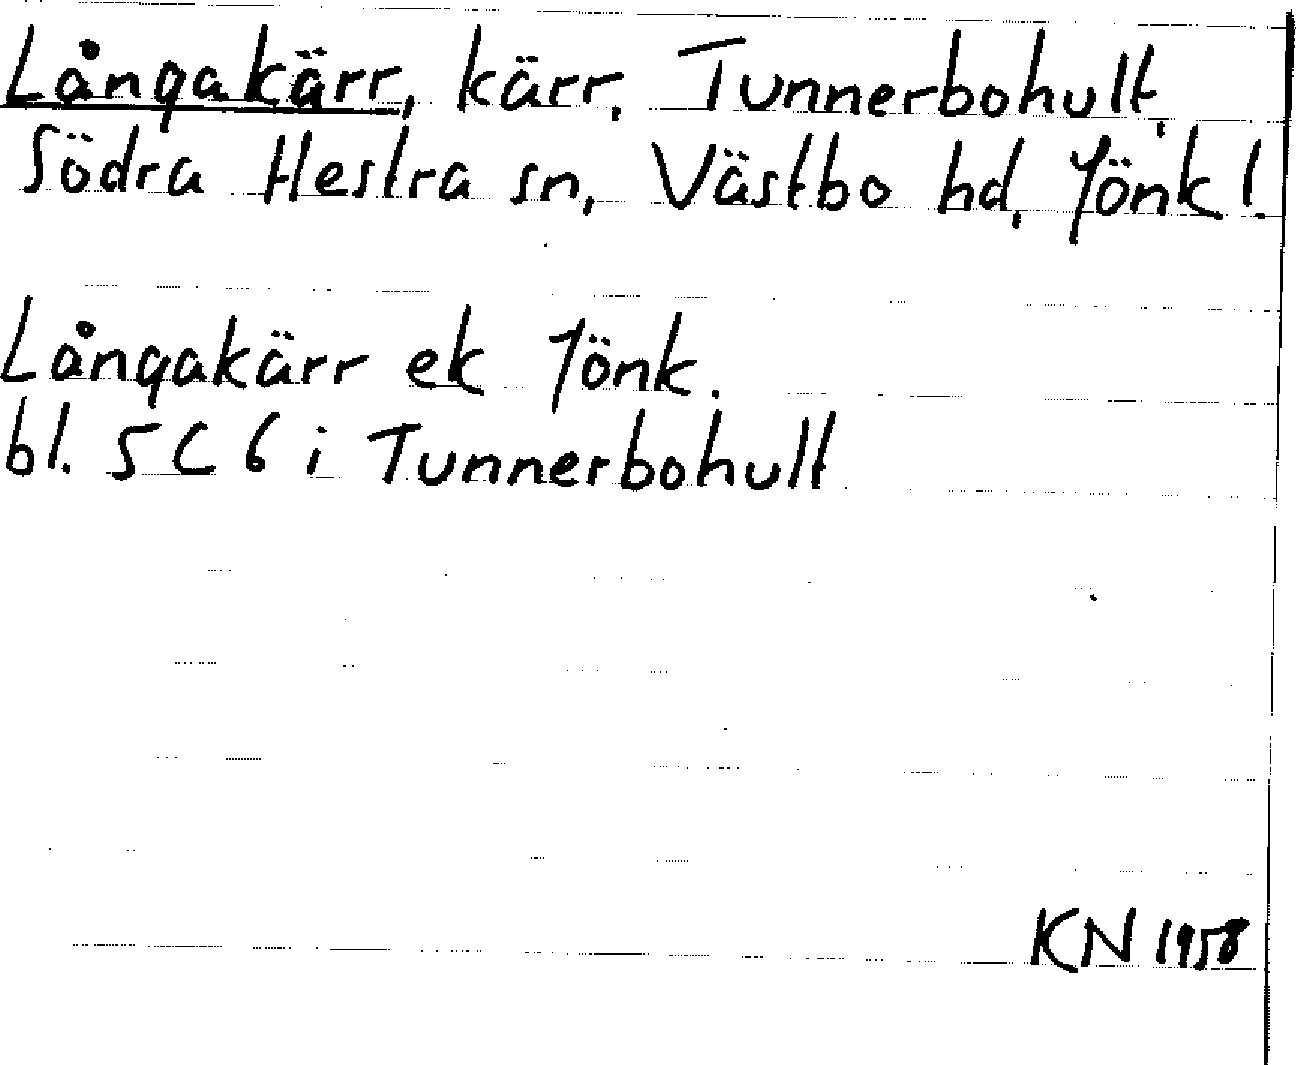 Långakärr, kärr, Tunnerbohult,
Södra Hestra sn, Västbo hd, Jönk l.
Långakärr ek Jönk.
bl. 5C6 i Tunnerbohult
KN 1958